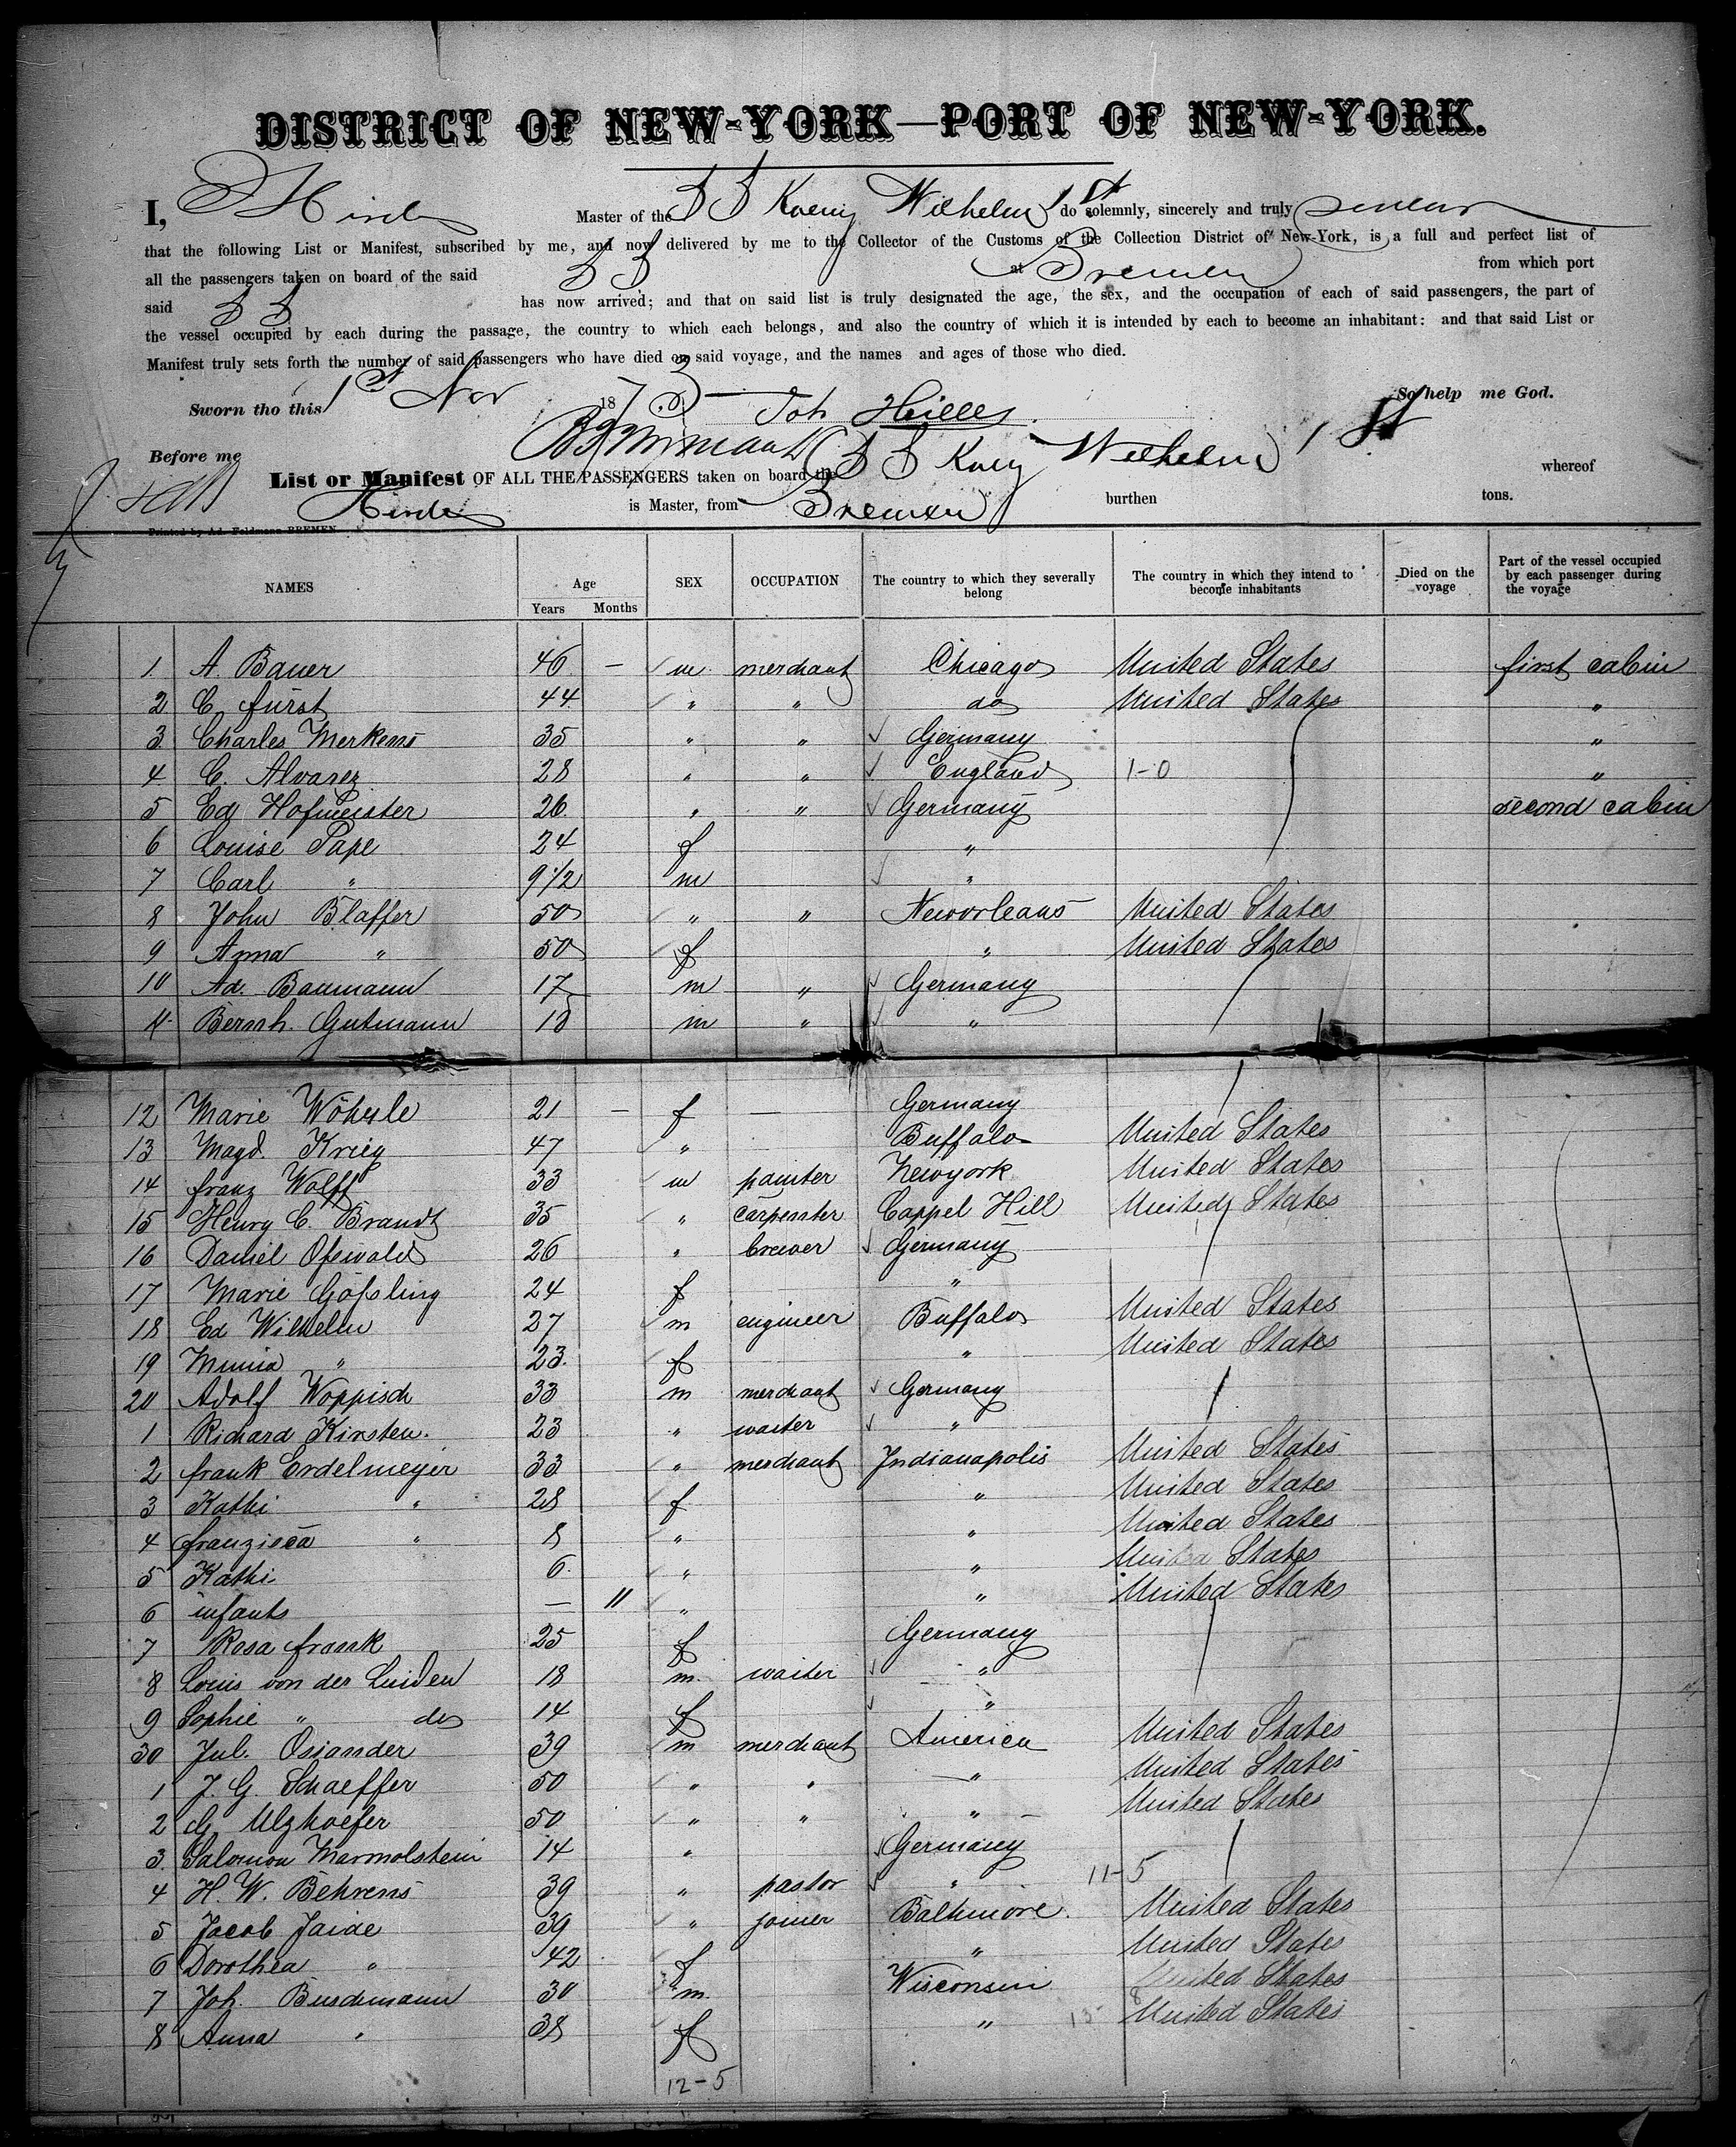 DISTRICT OF NEW-YORK—PORT OF NEW-YORK.
I, Master of the S S Koenig Wilhelm 1st do solemnly, sincerely and truly swear
that the following List or Manifest, subscribed by me, and now delivered by me to the Collector of the Customs of the Collection District of New-York, is a full and perfect list of
all the passengers taken on board of the said S S at Bremen from which port
said S S has now arrived; and that on said list is truly designated the age, the sex, and the occupation of each of said passengers, the part of
the vessel occupied by each during the passage, the country to which each belongs, and also the country of which it is intended by each to become an inhabitant: and that said List or
Manifest truly sets forth the number of said passengers who have died on said voyage, and the names and ages of those who died.
So help me God.
Sworn tho this 1st Nov 1873 Joh
Before me
List or Manifest OF ALL THE PASSENGERS taken on board the S S Koenig Wilhelm 1st whereof
is Master, from Bremen burthen tons.
Printed by Ad. Feldmann BREMEN
NAMES Age Years Months SEX OCCUPATION The country to which they severally belong The country in which they intend to become inhabitants Died on the voyage Part of the vessel occupied by each passenger during the voyage
1 A. Bauer 46 — m merchant Chicago United States first cabin
2 C fürst 44 " " do United States "
3 Charles Merkens 35 " " Germany "
4 C. Alvarez 28 " " England 1-0 "
5 Ed Hofmeister 26 " " Germany second cabin
6 Louise Pape 24 f "
7 Carl " 9 1/2 m "
8 John Blaffer 50 " " Neworleans United States
9 Anna " 50 f " United States
10 Ad. Baumann 17 m " Germany
11 Bernh. Gutmann 18 m " "
12 Marie Wöhrle 21 — f — Germany
13 Magd. Krieg 47 " Buffalo United States
14 franz Wolff 33 m painter Newyork United States
15 Henry C. Brandt 35 " carpenter Cappel Hill United States
16 Daniel Oßwald 26 " brewer Germany
17 Marie Gößling 24 f "
18 Ed Wilhelm 27 m engineer Buffalo United States
19 Minna " 23 f " United States
20 Adolf Woppisch 33 m merchant Germany
1 Richard Kirsten. 23 " waiter "
2 frank Erdelmeyer 33 " merchant Indianapolis United States
3 Kathi " 28 f " United States
4 franzisca " 8 " " United States
5 Kathi 6 " " United States
6 infants — 11 " " United States
7 Rosa frank 25 f Germany
8 Louis von der Linden 18 m waiter "
9 Sophie " do 14 f "
30 Jul. Osiander 39 m merchant America United States
1 J. G. Schaeffer 50 " " " United States
2 G Ulzhoefer 50 " " " United States
3 Salomon Marmolstein 14 " Germany
4 H. W. Behrens 39 " pastor " 11-5
5 Jacob Jaide 39 " joiner Baltimore United States
6 Dorothea " 42 f " United States
7 Joh. Buschmann 30 m Wisconsin United States
8 Anna " 38 f " United States
12-5